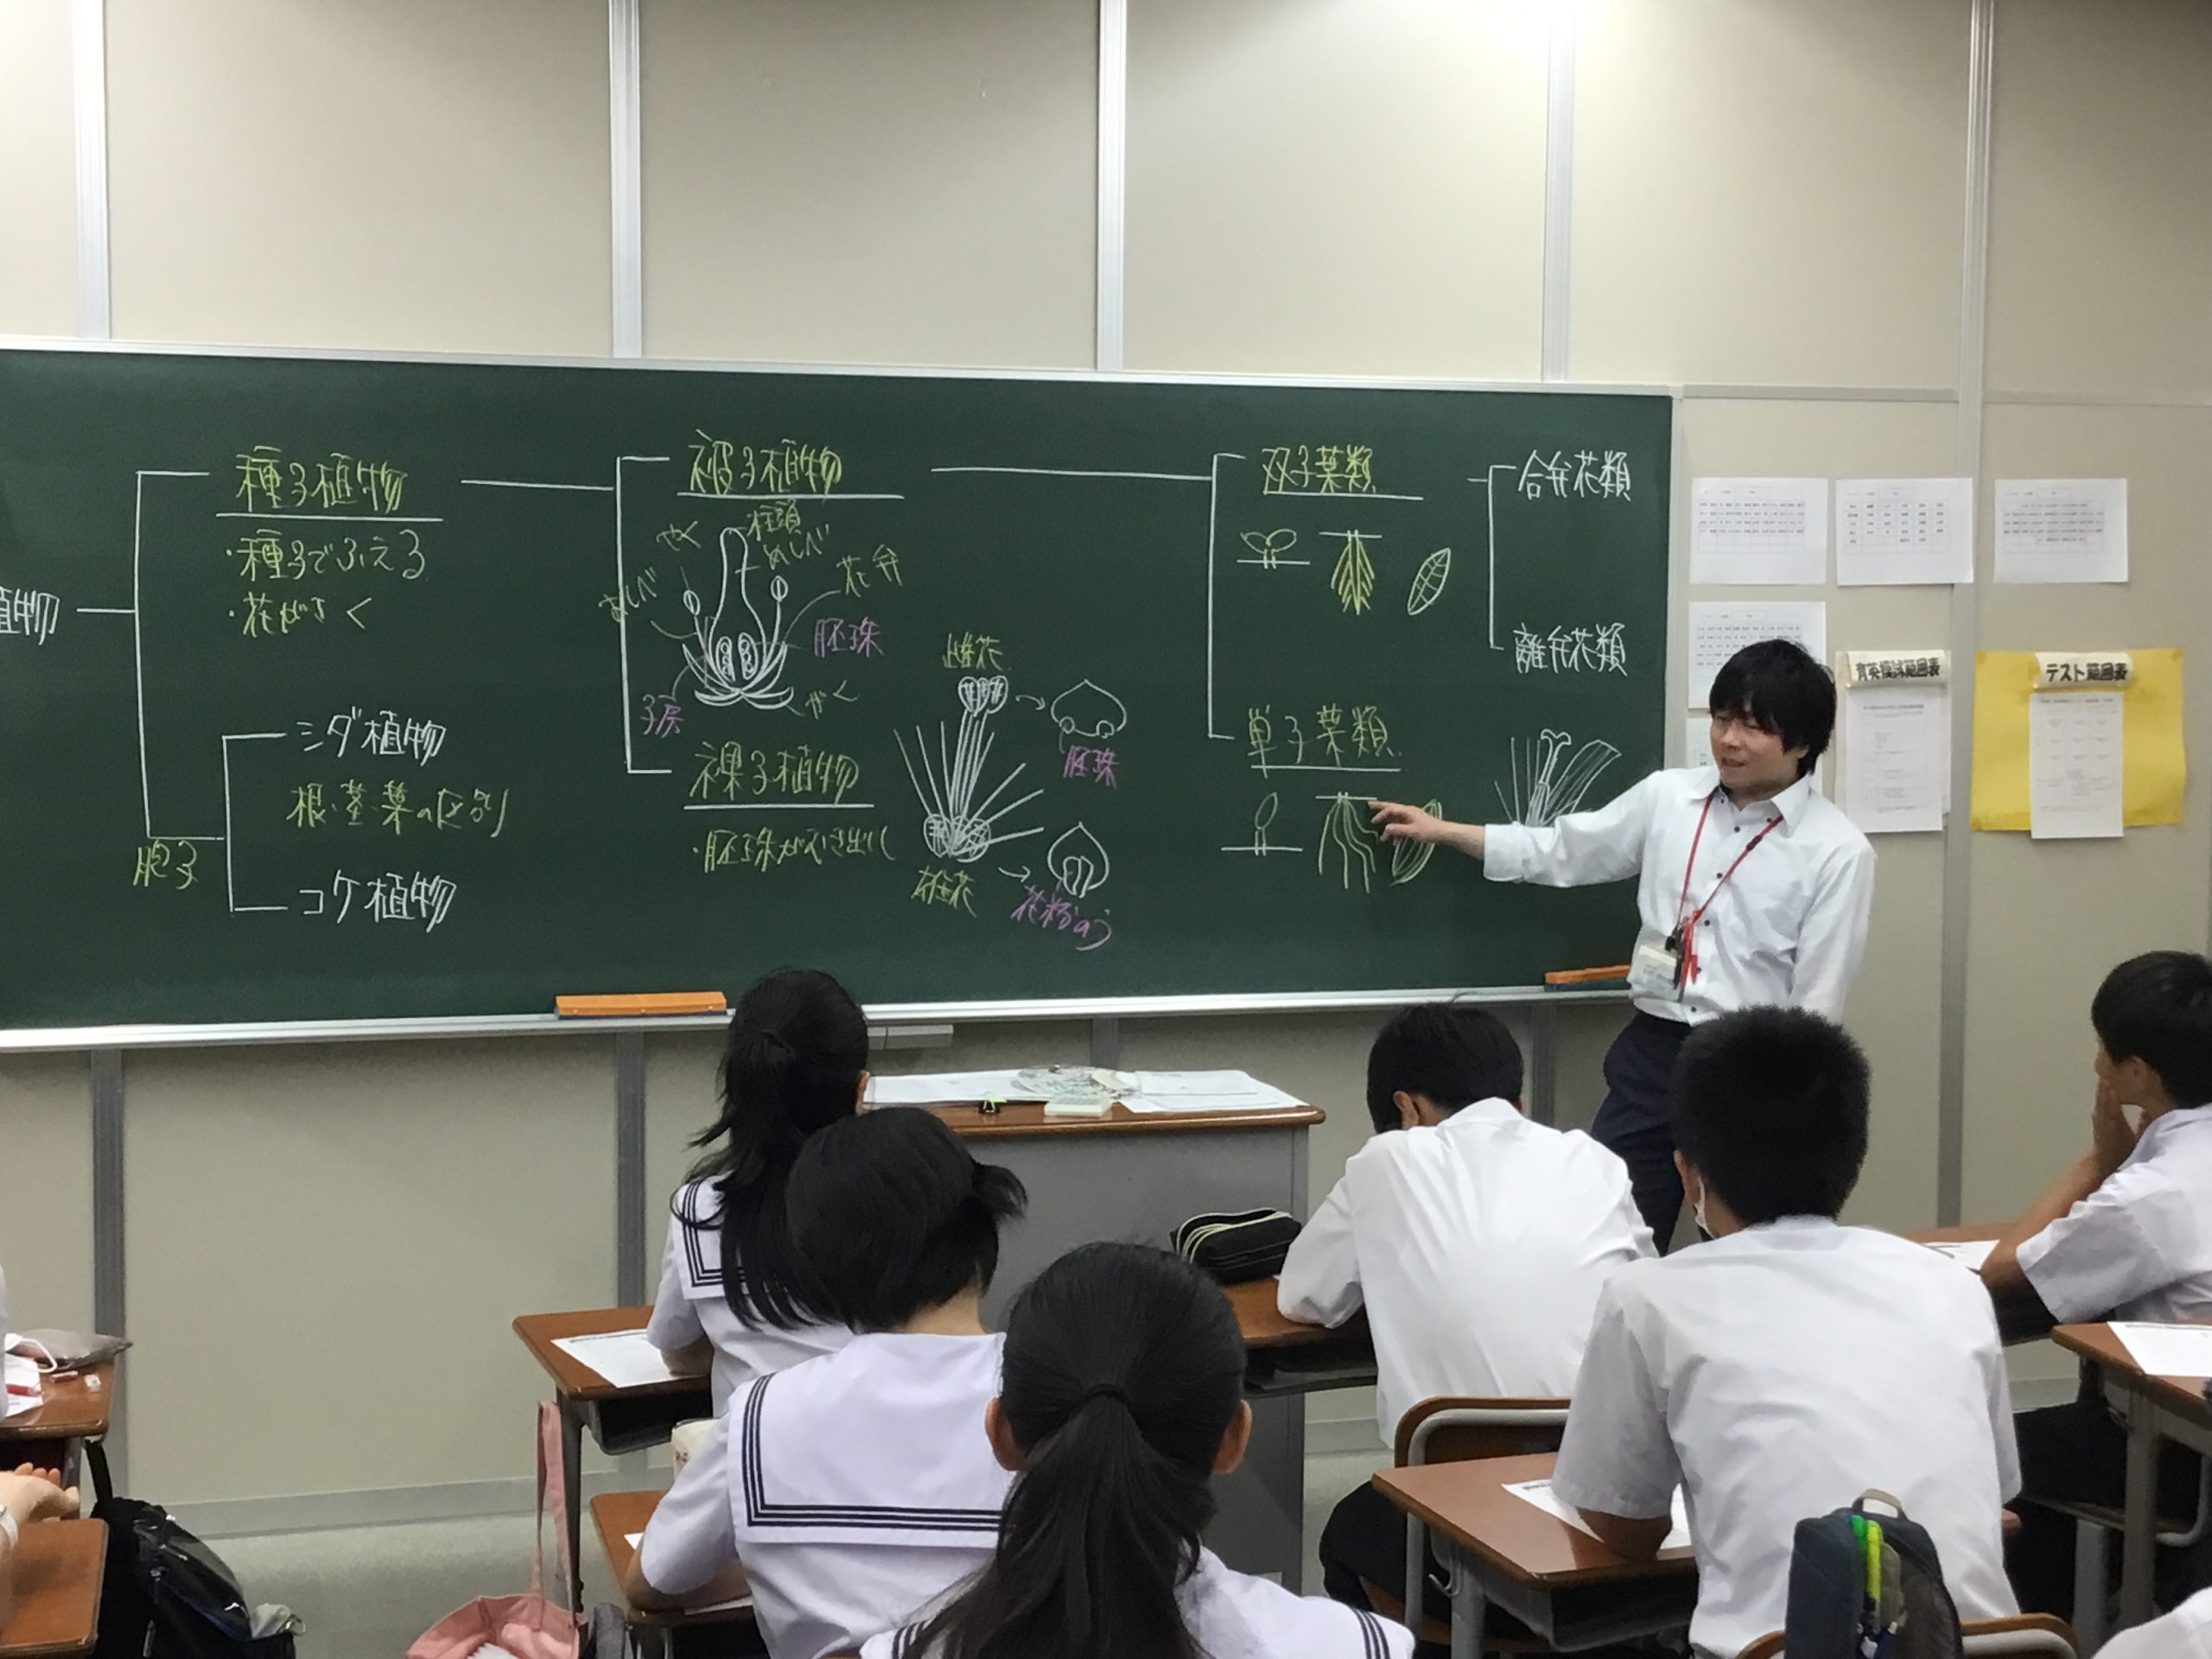 植物
種子植物
・種子でふえる
・花がさく
胞子
シダ植物
根・茎・葉の区別
コケ植物
被子植物
やく
柱頭
めしべ
おしべ
花弁
胚珠
子房
がく
裸子植物
・胚珠がむき出し
雌花
胚珠
雄花
花粉のう
双子葉類
単子葉類
合弁花類
離弁花類
育英模試範囲表
テスト範囲表